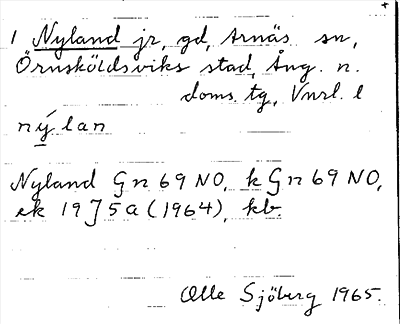 1 Nyland jr, gd, Arnäs sn,
Örnsköldsviks stad, Ång. n.
doms. tg, Vnrl. l
ný lan
Nyland Gn 69 NO, k Gn 69 NO,
ek 19J5a (1964), kb.
Olle Sjöberg 1965.